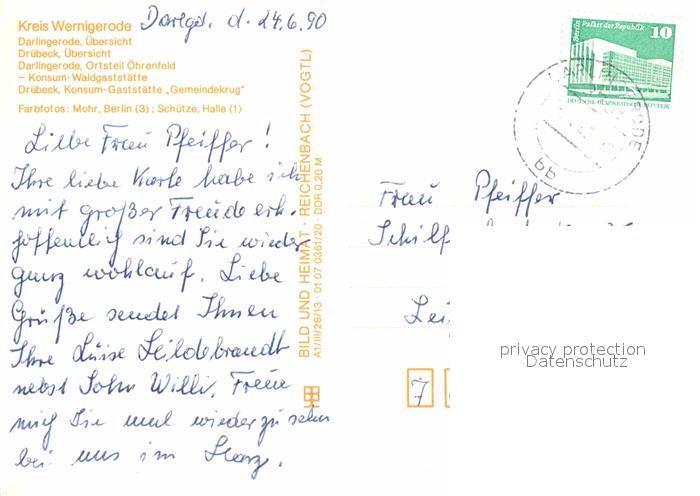 Kreis Wernigerode
Darlingerode, Übersicht
Drübeck, Übersicht
Darlingerode, Ortsteil Öhrenfeld
– Konsum-Waldgaststätte
Drübeck, Konsum-Gaststätte „Gemeindekrug"
Farbfotos: Mohr, Berlin (3) ; Schütze, Halle (1)
d. 24.6.90
Liebe Frau Pfeiffer !
Ihre liebe Karte habe ich
mit großer Freude erh.
hoffentlich sind Sie wieder
ganz wohlauf. Liebe
Grüße sendet Ihnen
Ihre Luise Hildebrandt
nebst Sohn Willi. Freue
mich Sie mal wieder zu sehn
bei uns im Harz.
BILD UND HEIMAT · REICHENBACH (VOGTL)
A1/III/26/13 · 01 07 0361/20 · DDR 0,20 M
Berlin Palast der Republik
10
DEUTSCHE DEMOKRATISCHE REPUBLIK
Frau Pfeiffer
Schilf
Lei
7
privacy protection
Datenschutz